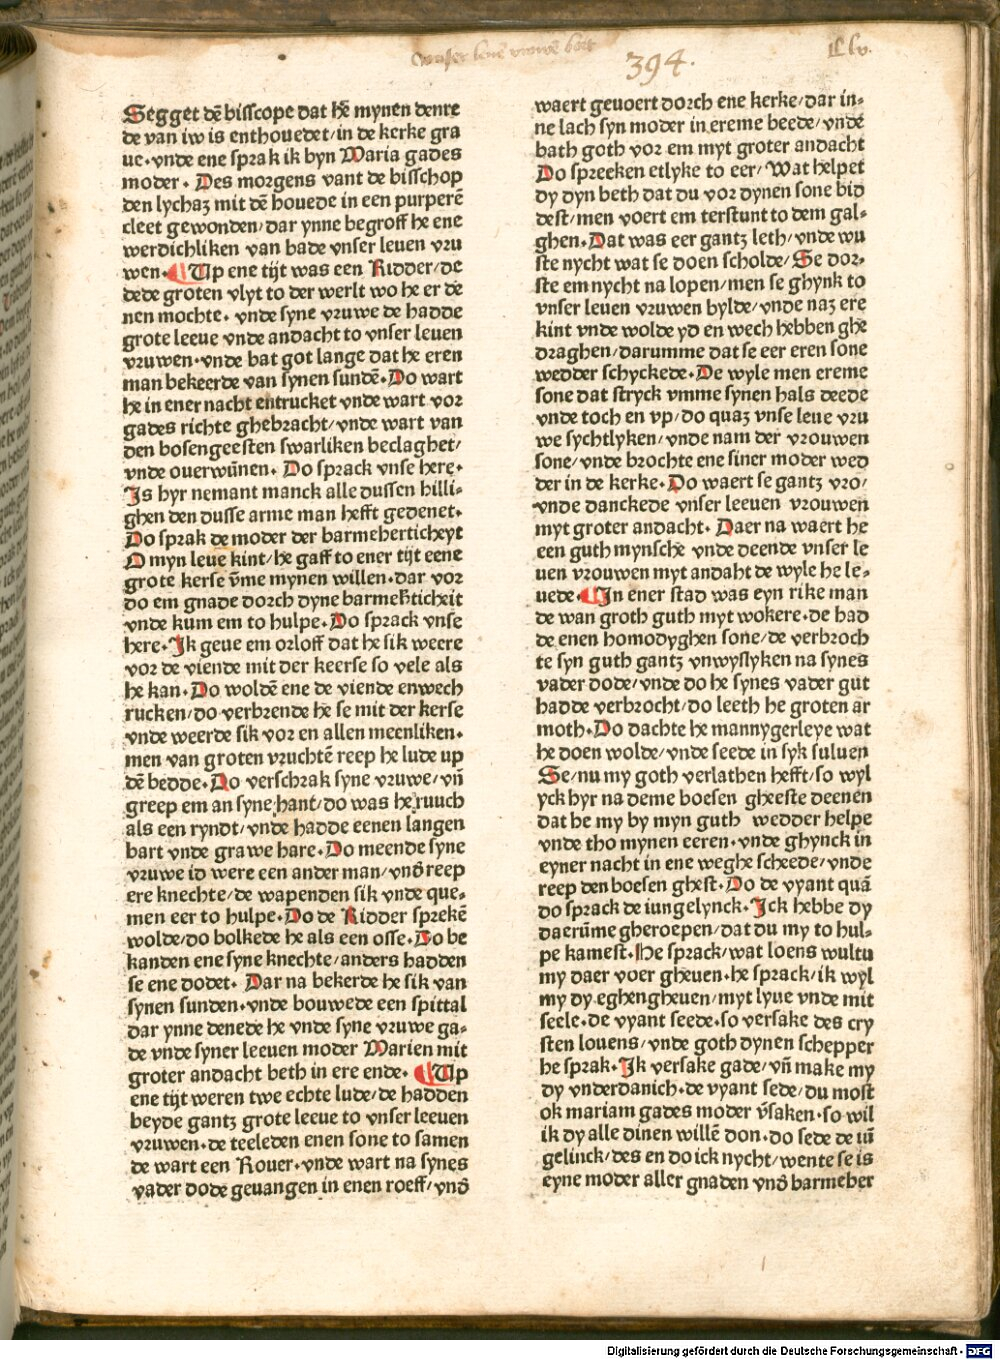 394.
Segget dē bisscope dat he mynen denre
de van iw is enthouedet/in de kerke gra
ue·vnde ene sprak ik byn Maria gades
moder· Des morgens vant de bisschop
den lychaz mit dē houede in een purperē
cleet gewonden/dar ynne begroff he ene
werdichliken van bade vnser leuen vru
wen· ¶ Up ene tijt was een Ridder/de
dede groten vlyt to der werlt wo he er de
nen mochte· vnde syne vruwe de hadde
grote leeue vnde andacht to vnser leuen
vruwen·vnde bat got lange dat he eren
man bekeerde van synen sundē·Do wart
he in ener nacht entrucket vnde wart vor
gades richte ghebracht/vnde wart van
den bosengeesten swarliken beclaghet/
vnde ouerwūnen· Do sprack vnse here·
Is hyr nemant manck alle dussen hilli⸗
ghen den dusse arme man hefft gedenet·
Do sprak de moder der barmeherticheyt
O myn leue kint/he gaff to ener tijt eene
grote kerse v̄me mynen willen·dar vor
do em gnade dorch dyne barmeh̄ticheit
vnde kum em to hulpe·Do sprack vnse
here·Ik geue em orloff dat he sik weere
vor de viende mit der keerse so vele als
he kan·Do woldē ene de viende enwech
rucken/do verbrende he se mit der kerse
vnde weerde sik vor en allen meenliken·
men van groten vruchtē reep he lude up
dē bedde·Do verschrak syne vruwe/vn̄
greep em an syne hant/do was he ruuch
als een ryndt/vnde hadde eenen langen
bart vnde grawe hare·Do meende syne
vruwe id were een ander man/vnd̄ reep
ere knechte/de wapenden sik vnde que⸗
men eer to hulpe·Do de Ridder sprekē
wolde/do bolkede he als een osse·Do be
kanden ene syne knechte/anders hadden
se ene dodet· Dar na bekerde he sik van
synen sunden·vnde bouwede een spittal
dar ynne denede he vnde syne vruwe ga⸗
de vnde syner leeuen moder Marien mit
groter andacht beth in ere ende· ¶ Up
ene tijt weren twe echte lude/de hadden
beyde gantz grote leeue to vnser leeuen
vruwen·de teeleden enen sone to samen
de wart een Rouer·vnde wart na synes
vader dode geuangen in enen roeff/vnd̄
waert geuoert dorch ene kerke/dar in⸗
ne lach syn moder in ereme beede/vnde
bath goth vor em myt groter andacht
Do spreeken etlyke to eer/Wat helpet
dy dyn beth dat du vor dynen sone bid
dest/men voert em terstunt to dem gal⸗
ghen·Dat was eer gantz leth/vnde wu
ste nycht wat se doen scholde/Se dor⸗
ste em nycht na lopen/men se ghynk to
vnser leuen vruwen bylde/vnde naz ere
kint vnde wolde yd en wech hebben ghe
draghen/darumme dat se eer eren sone
wedder schyckede·De wyle men ereme
sone dat stryck vmme synen hals deede
vnde toch en vp/do quaz vnse leue vru
we sychtlyken/vnde nam der vrouwen
sone/vnde brochte ene siner moder wed
der in de kerke·Do waert se gantz vro/
vnde danckede vnser leeuen vrouwen
myt groter andacht· Daer na waert he
een guth mynsche vnde deende vnser le
uen vrouwen myt andaht de wyle he le⸗
uede· ¶ In ener stad was eyn rike man
de wan groth guth myt wokere·de had
de enen homodyghen sone/de verbroch
te syn guth gantz vnwyslyken na synes
vader dode/vnde do he synes vader gut
hadde verbrocht/do leeth he groten ar
moth·Do dachte he mannygerleye wat
he doen wolde/vnde seede in syk suluen
Se/nu my goth verlathen hefft/so wyl
yck hyr na deme boesen gheeste deenen
dat he my by myn guth wedder helpe
vnde tho mynen eeren·vnde ghynck in
eyner nacht in ene weghe scheede/vnde
reep den boesen ghest·Do de vyant quā
do sprack de iungelynck·Ick hebbe dy
daerūme gheroepen/dat du my to hul⸗
pe kamest·He sprack/wat loens wultu
my daer voer gheuen·he sprack/ik wyl
my dy eghengheuen/myt lyue vnde mit
seele·de vyant seede·so versake des cry
sten louens/vnde goth dynen schepper
he sprak·Ik versake gade/vn̄ make my
dy vnderdanich·de vyant sede/du most
ok mariam gades moder v̄saken·so wil
ik dy alle dinen willē don·do sede de iū
gelinck/des en do ick nycht/wente se is
eyne moder aller gnaden vnd̄ barmeher
Digitalisierung gefördert durch die Deutsche Forschungsgemeinschaft - DFG